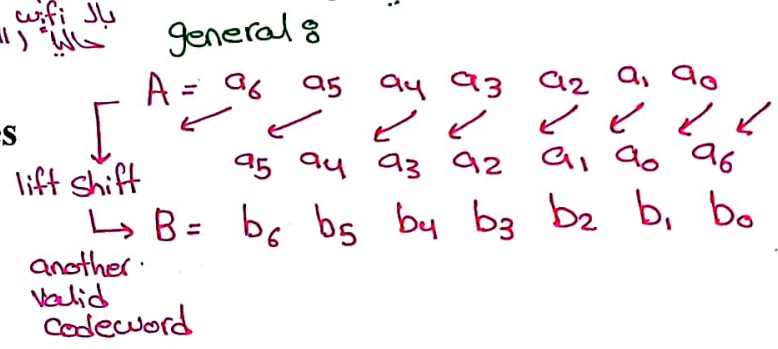 بال wifi
حالياً
general :
A = a6 a5 a4 a3 a2 a1 a0
s
a5 a4 a3 a2 a1 a0 a6
lift shift
B = b6 b5 b4 b3 b2 b1 b0
another.
valid
codeword